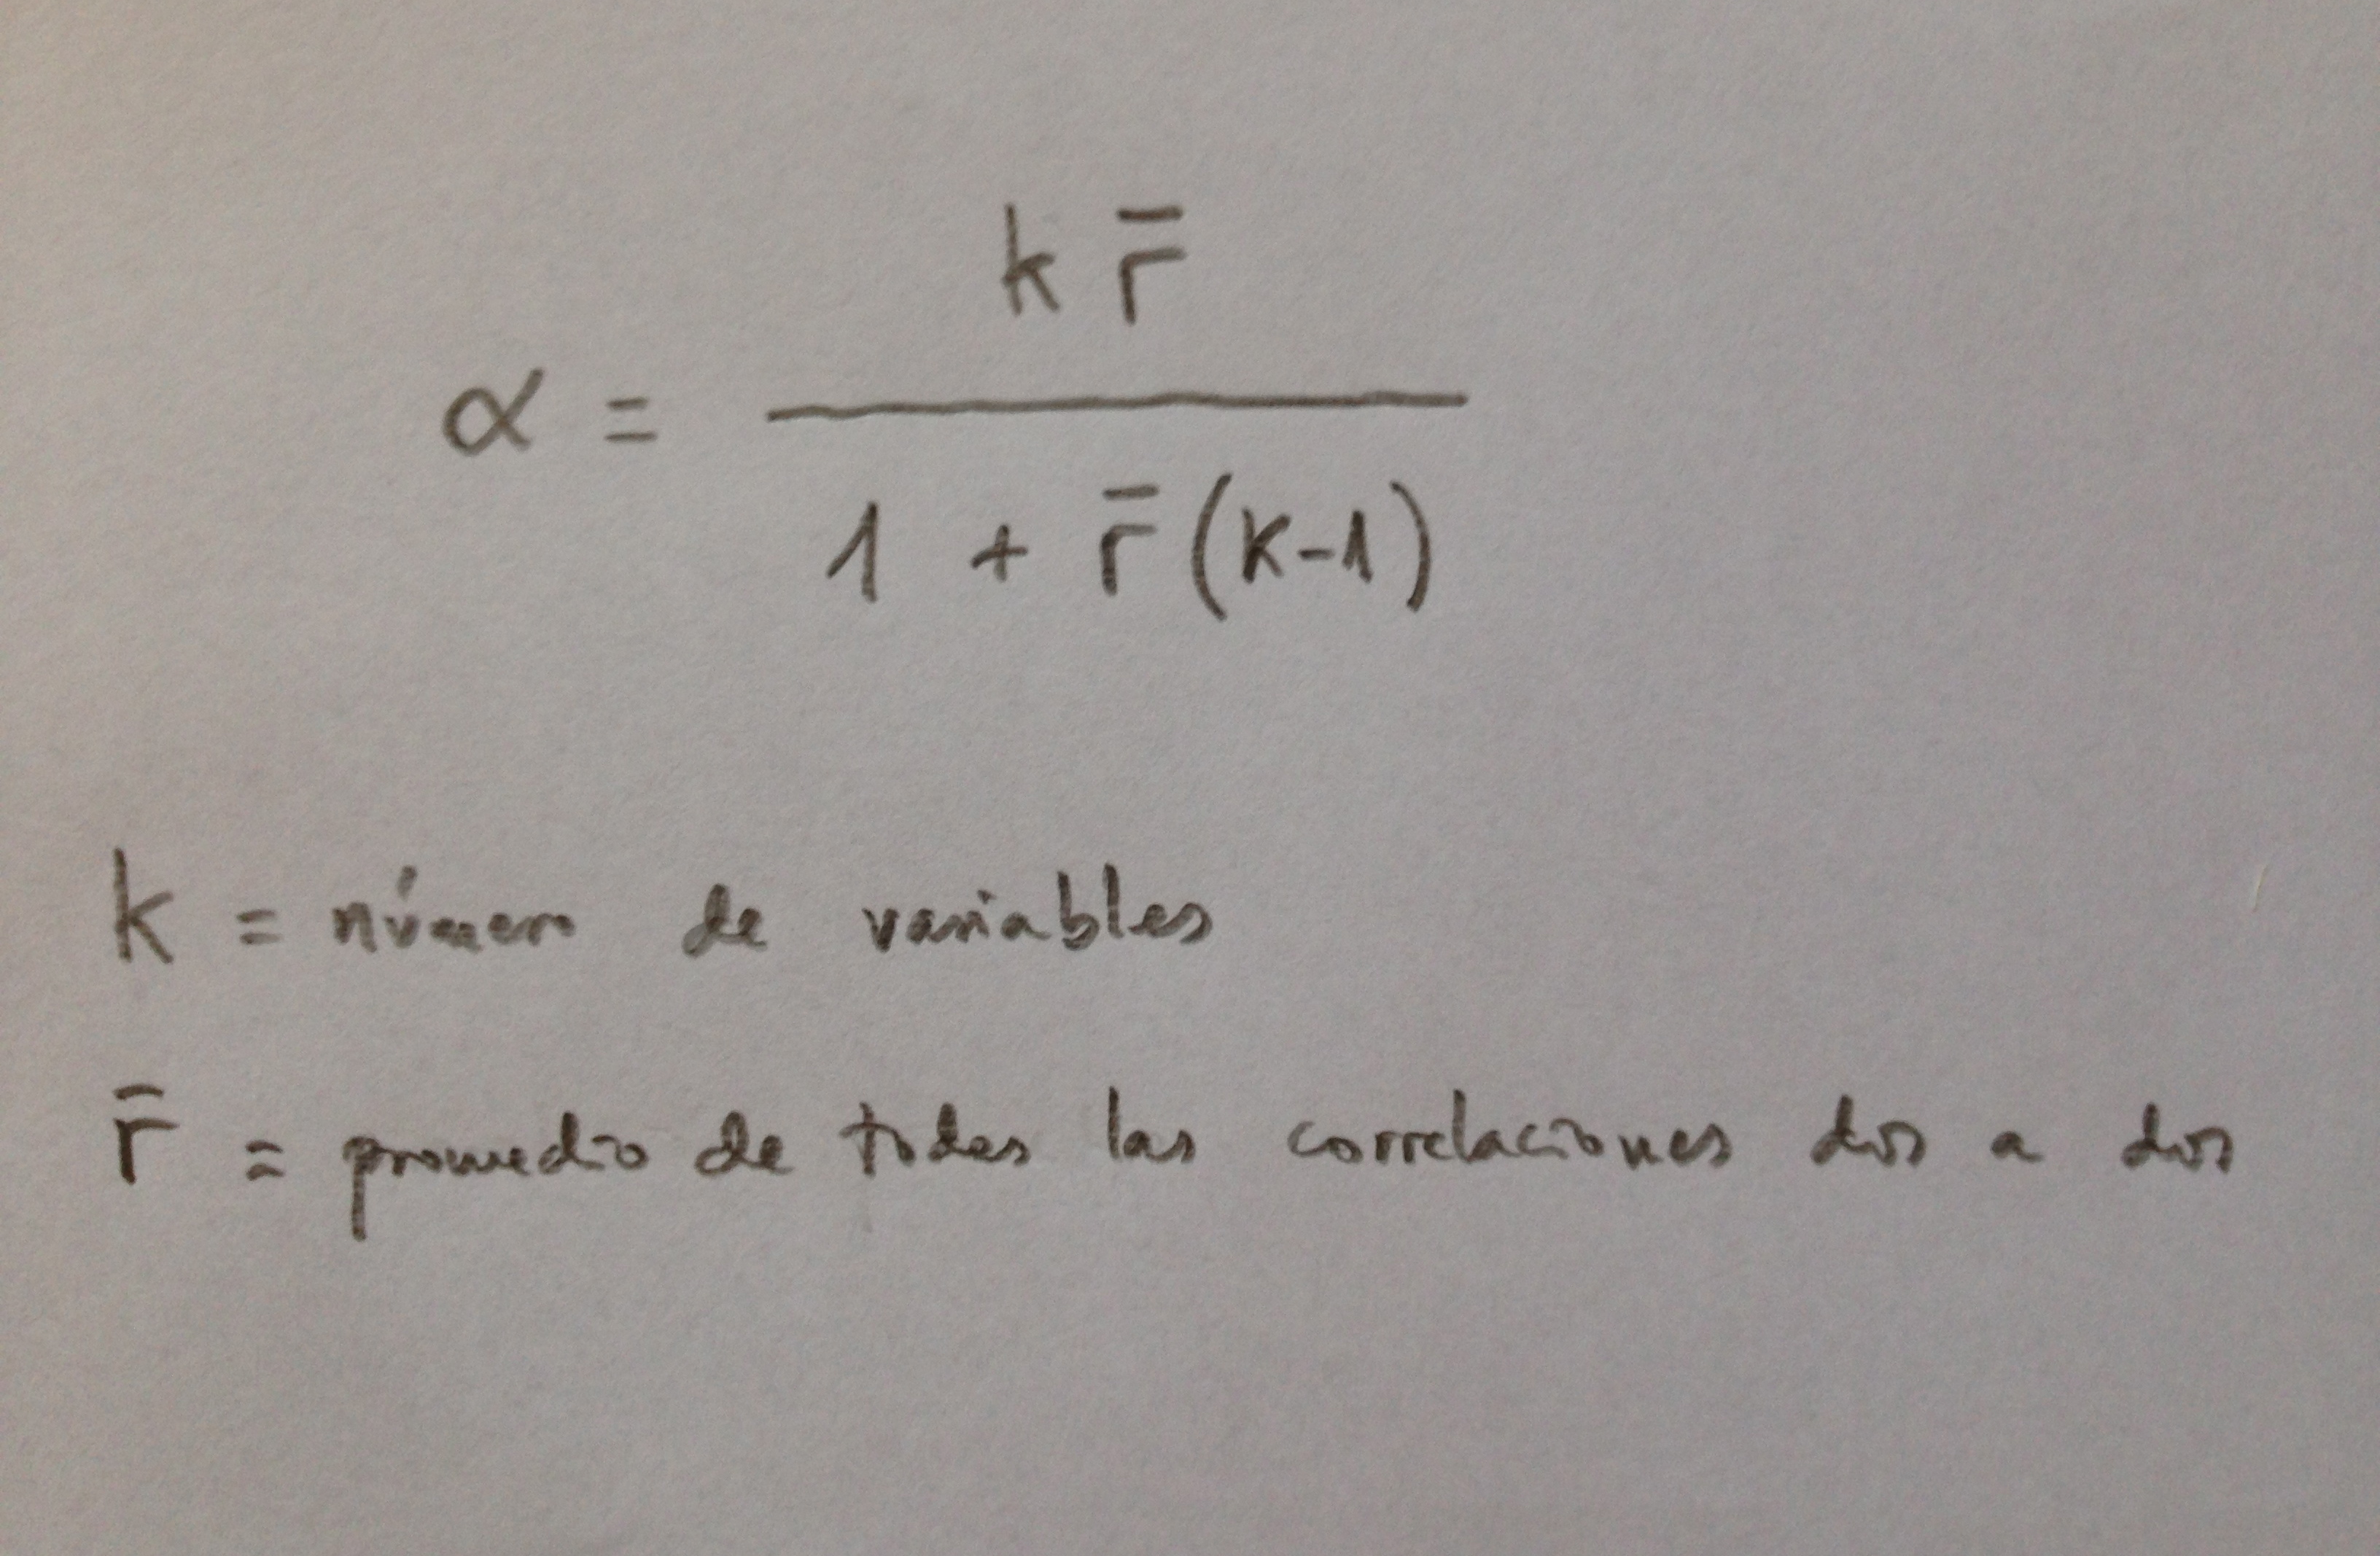 α = k r̄ / 1 + r̄ (k-1)
k = número de variables
r̄ = promedio de todas las correlaciones dos a dos